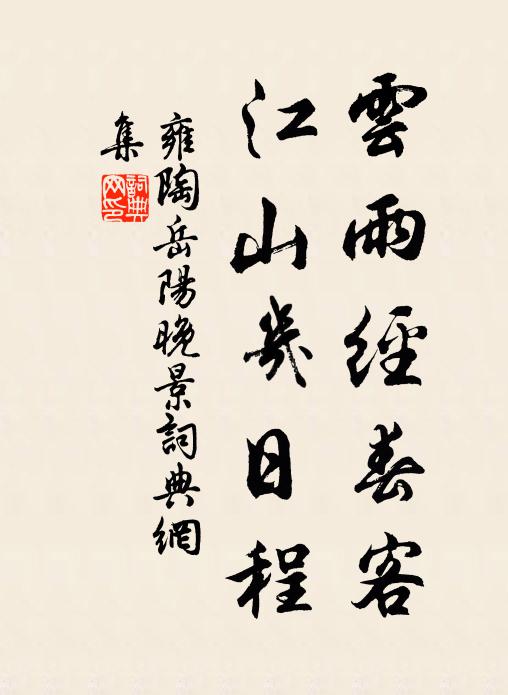 雲雨經春客
江山幾日程
雍陶岳陽晚景詞典網
集
詞典
网印